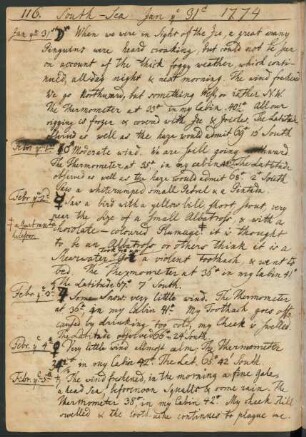 116. South-Sea Jan yͤ 31ˢᵗ 1774
Jan yͤ 31ˢᵗ When we were in Sight of the Ice, a great many
Penguins were heard croaking, but could not be seen
on account of the thick foggy weather which conti-
nued, all day night & next morning. The wind freshened
We go Northward, but something West or rather N.W.
The Thermometer at 33° in my Cabin 40½. All our
rigging is froze & covered with Ice & Icicles. The Latitude
observed as well as the haze would admit South
Febr yͤ 1ˢᵗ Moderate wind. We are still going Northward
The Thermometer at 35° in my cabbin The Latitude
observed as well as the haze would admit 68° 2' South
Saw a white-ranged small Petrel
Febr yͤ 2ᵈ Saw a bird with a yellow bill short front, very
near the Size of a Small Albatross & with a
chocolate-coloured Plumage & it is thought
to be an Albatross or others think it is a
a violent toothach, & went to
bed. The Thermometer at 36° in my Cabin 41
The Latitude 67° 7' South.
Febr yͤ 3ᵈ Some Snow very little wind. The Thermometer
at 36° in my Cabin 41. My Toothach goes off
by drinking too cold, my Cheek is swelled
The Latitude observed 66° 24' South
Febr yͤ 4ᵗʰ Very little wind allmost calm The Thermometer
in my Cabin 42° The Lat. 65° 42' South
Febr yͤ 5ᵗʰ The wind freshened, in the morning a fine gale,
a head Sea, afternoon a Squall & some rain. The
Thermometer 38° in my Cabin 42° My cheek still
swelled & the tooth continues to plague me